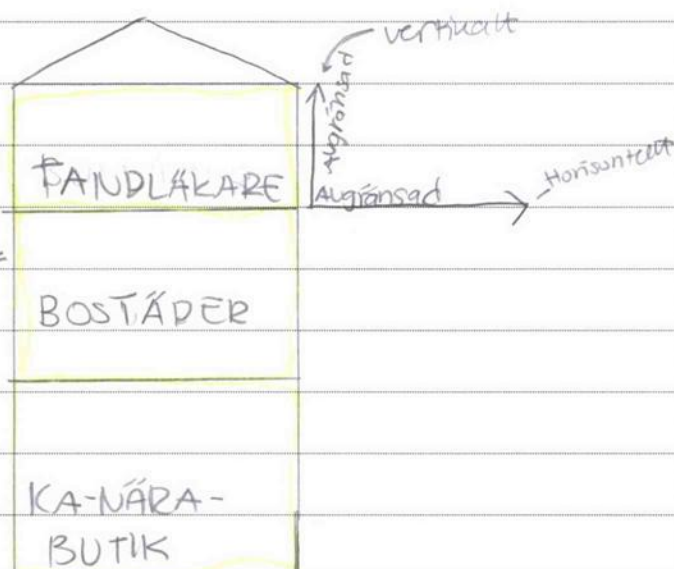 vertikalt
Avgränsad
TANDLÄKARE
Avgränsad
Horisontellt
BOSTÄDER
KA-NÄRA-
BUTIK